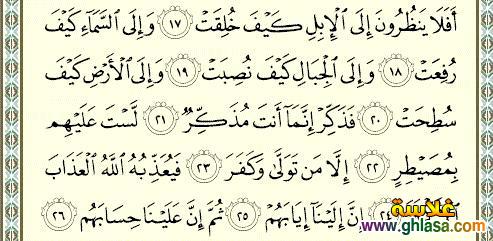 أَفَلَا يَنظُرُونَ إِلَى ٱلْإِبِلِ كَيْفَ خُلِقَتْ ١٧ وَإِلَى ٱلسَّمَآءِ كَيْفَ
رُفِعَتْ ١٨ وَإِلَى ٱلْجِبَالِ كَيْفَ نُصِبَتْ ١٩ وَإِلَى ٱلْأَرْضِ كَيْفَ
سُطِحَتْ ٢٠ فَذَكِّرْ إِنَّمَآ أَنتَ مُذَكِّرٌ ٢١ لَّسْتَ عَلَيْهِم
بِمُصَيْطِرٍ ٢٢ إِلَّا مَن تَوَلَّىٰ وَكَفَرَ ٢٣ فَيُعَذِّبُهُ ٱللَّهُ ٱلْعَذَابَ
٢٤ إِنَّ إِلَيْنَآ إِيَابَهُمْ ٢٥ ثُمَّ إِنَّ عَلَيْنَا حِسَابَهُم ٢٦
غلاسة
www.ghlasa.com